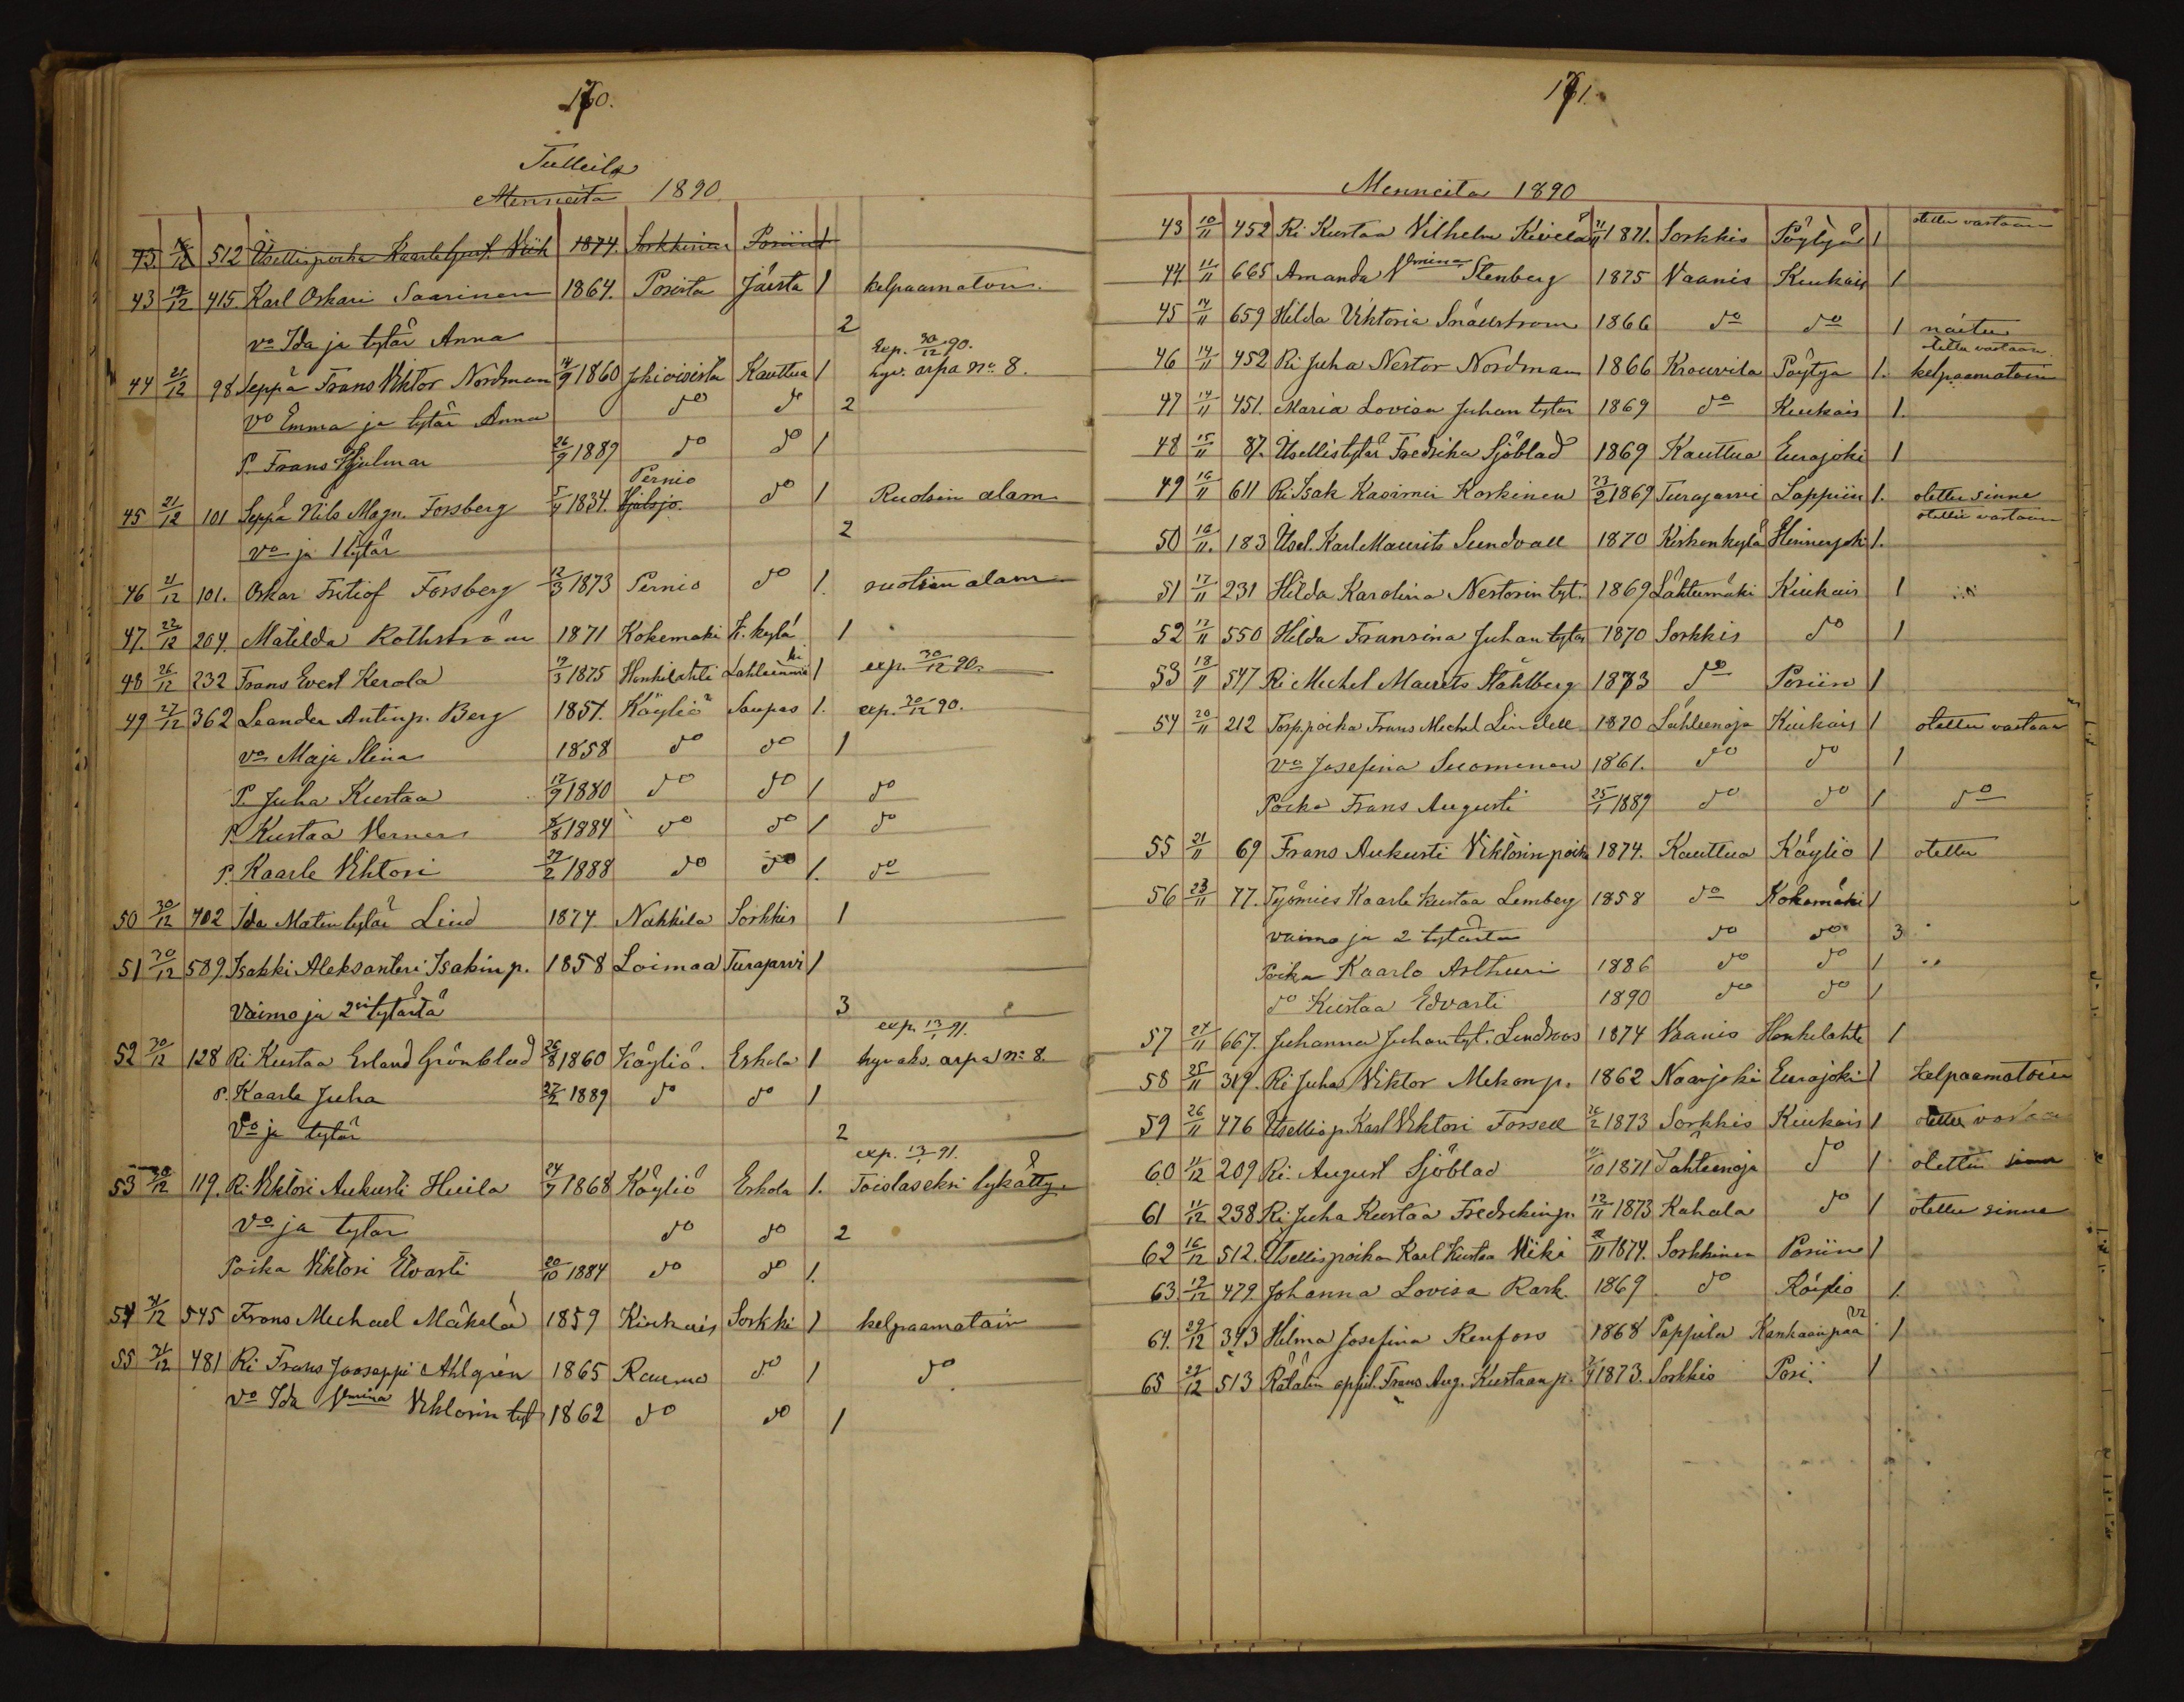 170.
Tulleita
Menneitä 1890.
43 16/12 512 Itsellispoika Kaarle Gust. Niik 1874. Sorkkinen Poriin 1
43 19/12 415. Karl Oskari Saarinen 1864. Porista Järsta 1 kelpaamaton.
vo Ida ja tytär Anna 2
exp. 30/12 90.
44 21/12 98 Seppä Frans Viktor Nordman 14/9 1860 Jokioisista Kauttua 1 hyv. arpa No. 8.
vo Emma ja tytär Anna do do 2
P. Frans Hjalmar 26/9 1889 do do 1
Pernio
45 21/12 101 Seppä Nils Magn. Forsberg 5/4 1834. Hjälsjö. do 1 Ruotsin alam
vo ja 1 tytär 2
46 21/12 101. Oskar Fritiof Forsberg 12/3 1873 Pernio do 1. ruotsin alam
47. 22/12 204. Matilda Rothström 1871 Kokemäki K. kylä 1
48 26/12 232 Frans Evert Kerola 19/3 1875 Honkilahti Lahteenmäki 1 exp. 30/12 90.
49 27/12 362 Leander Antinp. Berg 1857. Köyliö Naupas 1. exp. 30/12 90.
vo Maja Stina 1858 do do 1
P. Juha Kustaa 17/9 1880 do do 1 do
P. Kustaa Verner 1884 do do 1 do
P. Kaarle Viktori 29/2 1888 do do 1. do
50 30/12 402 Ida Matintytär Lind 1874. Nakkila Sorkkis 1
51 30/12 589. Isakki Aleksanteri Isakinp. 1858 Loimaa Turajarvi 1
Vaimo ja 2 tytärtä 3
exp. 13/1 91.
52 30/12 128 Ri Kustaa Erland Grönblad 26/8 1860 Köyliö. Eskola 1 hyvaks. arpa No 8.
P. Kaarle Juha 27/2 1889 do do 1
Vo ja tytär 2
exp. 13/1 91.
53 30/12 119. Ri Viktori Aukusti Huila 24/7 1868 Köyliö Eskola 1. Toistaseksi lykätty
Vo ja tytar do do 2
Poika Viktori Edvarti 20/10 1884 do do 1.
54 31/12 545 Frans Michael Mäkelä 1859 Kiukais Sorkki 1 kelpaamatoin
55 31/12 481 Ri Frans Jooseppi Ahlgrén 1865 Rauma do 1 do
Vo Ida Vilmina Viktorin tyt 1862 do do 1
171.
Menneitä 1890
43 10/11 452 Ri Kustaa Vilhelm Kivelä 1871. Sorkkis Pöytyä 1 otettu vastaan
44. 11/11 665 Amanda Vilmina Stenberg 1875 Vaanis Kiukais 1
45 14/11 659 Hilda Viktoria Snällström 1866 do do 1 näitu
otettu vastaan.
46 14/11 452 Ri Juha Nestor Nordman 1866 Krouvila Pöytya 1. kelpaamatoin
47 14/11 451. Maria Lovisa Juhan tytar 1869 do Kiukais 1.
48 15/11 87. Itsellistytär Fredrika Sjöblad 1869 Kauttua Eurajoki 1
49 16/11 611 Ri Isak Kasimir Koskinen 23/2 1869 Turajarvi Lappiin 1. otettu sinne
otettiin vastaan
50 16/11. 183 Itsel. Karl Maurits Sundvall 1870 Kirkonkylä Hinnerjoki 1.
51 17/11 231 Hilda Karolina Nestorin tyt. 1869 Lähtumäki Kiukais 1
52 17/11 550 Hilda Fransina Juhan tytar 1870 Sorkkis do 1
53 18/11 547 Ri Michel Maurits Ståhlberg 1873 do Poriin 1
54 20/11 212 Torp. poika Frans Michel Lindell 1870 Lähteenoja Kiukais 1 otettu vastaan
Vo Josefina Suominen 1861. do do 1
Poika Frans Augusti 25/1 1889 do do 1 do
55 21/11 69 Frans Aukusti Viktorinpoika 1874. Kauttua Köyliö 1 otettu
56 23/11 77. Työmies Kaarle Kustaa Lemberg 1858 do Kokomäki 1
vaimo ja 2 tytärta do do 3
Poika Kaarlo Arthuri 1886 do do 1
do Kustaa Edvarti 1890 do do 1
57 24/11 667. Juhanna Juhan tyt. Lindroos 1874 Vaanis Honkilahte 1
58 25/11 319. Ri Juha Viktor Mikonp. 1862 Naarjoki Eurajoki 1 kelpaamatoin
59 26/11 476 Itsellis p. Karl Viktori Forsell 1873 Sorkkis Kiukais 1 otettu vastaan
60 11/12 209 Ri. August Sjöblad 1871 Lahteenoja do 1. otettiin sinne
61 11/12 238 Ri Juha Kustaa Fredrikinp. 12/11 1873 Kahala do 1 otettu sinne
62 16/12 512. Itsellispoika Karl Kustaa Niki 1874. Sorkkinen Poriin 1
63 19/12 479. Johanna Lovisa Rark. 1869 do Köylio 1.
64. 29/12 343 Hilma Josefina Renfors 1868 Pappila Kankaanpää 1
65 29/12 513 Rätälin oppil. Frans Aug. Kustaanp. 1873. Sorkkis Pori. 1